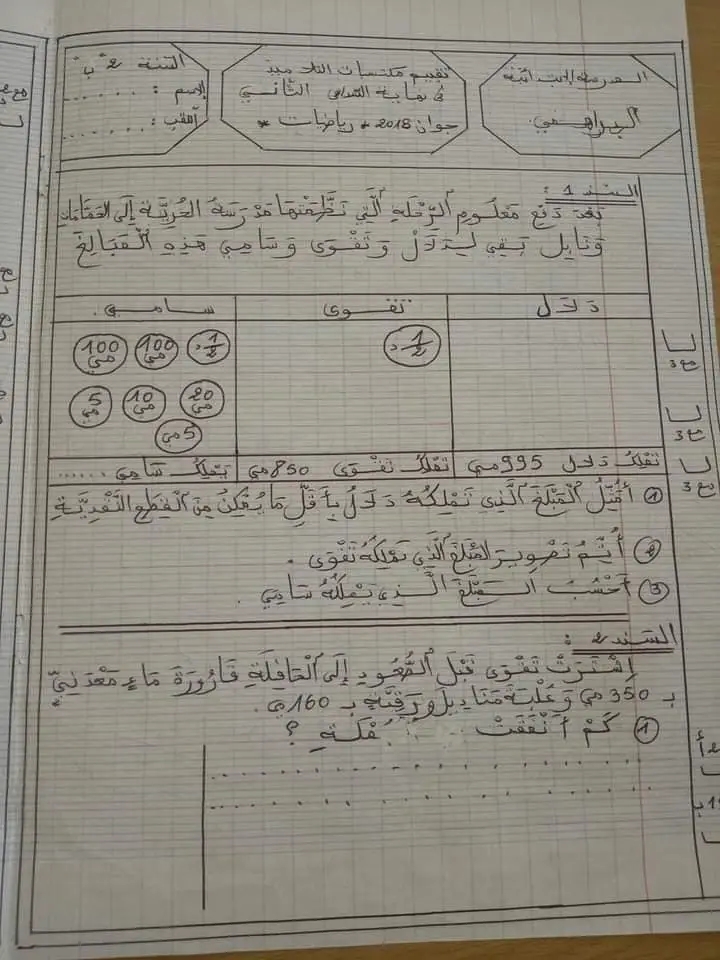 المدرسة الابتدائية
البراهمي
تقييم مكتسبات التلاميذ
في نهاية الثلاثي الثاني
جوان 2018 * رياضيات *
السنة 2 "ب"
الاسم : ......
اللقب : ......
السند 1 :
بَعْدَ دَفْعِ مَعْلُومِ الرِّحْلَةِ الَّتِي نَظَّمَتْهَا مَدْرَسَةُ الحُرِيَّة إِلَى الحَمَّامَاتِ
وَنَابِل بَقِي لِدَلَالْ وَتَقْوَى وَسَامِي هَذِهِ الْمَبَالِغْ
دلال
تقوى
سامي
1/2 د
1/2 د
100 مي
100 مي
20 مي
10 مي
5 مي
5 مي
تملك دلال 995 مي
تملك تقوى 850 مي
يملك سامي ......
مع 3
مع 3
مع 3
① أُمَثِّلُ الْمَبْلَغَ الَّذِي تَمْلِكُهُ دَلَالُ بِأَقَلِّ مَا يُمْكِنُ مِنَ الْقِطَعِ النَّقْدِيَّةِ
② أُتَمِّمُ تَصْوِيرَ المَبْلَغِ الَّذِي تَمْلِكُهُ تَقْوَى .
③ أَحْسُبُ المَبْلَغَ الَّذِي يَمْلِكُهُ سَامِي .
السند 2 :
اِشْتَرَتْ تَقْوَى قَبْلَ الصُّعُودِ إِلَى الْحَافِلَةِ قَارُورَةَ مَاءٍ مَعْدَنِيٍّ
بـ 350 مي وَعُلْبَةَ مَنَادِيلَ وَرَقِيَّةٍ بـ 160 مي.
① كَمْ أَنْفَقَتْ ؟